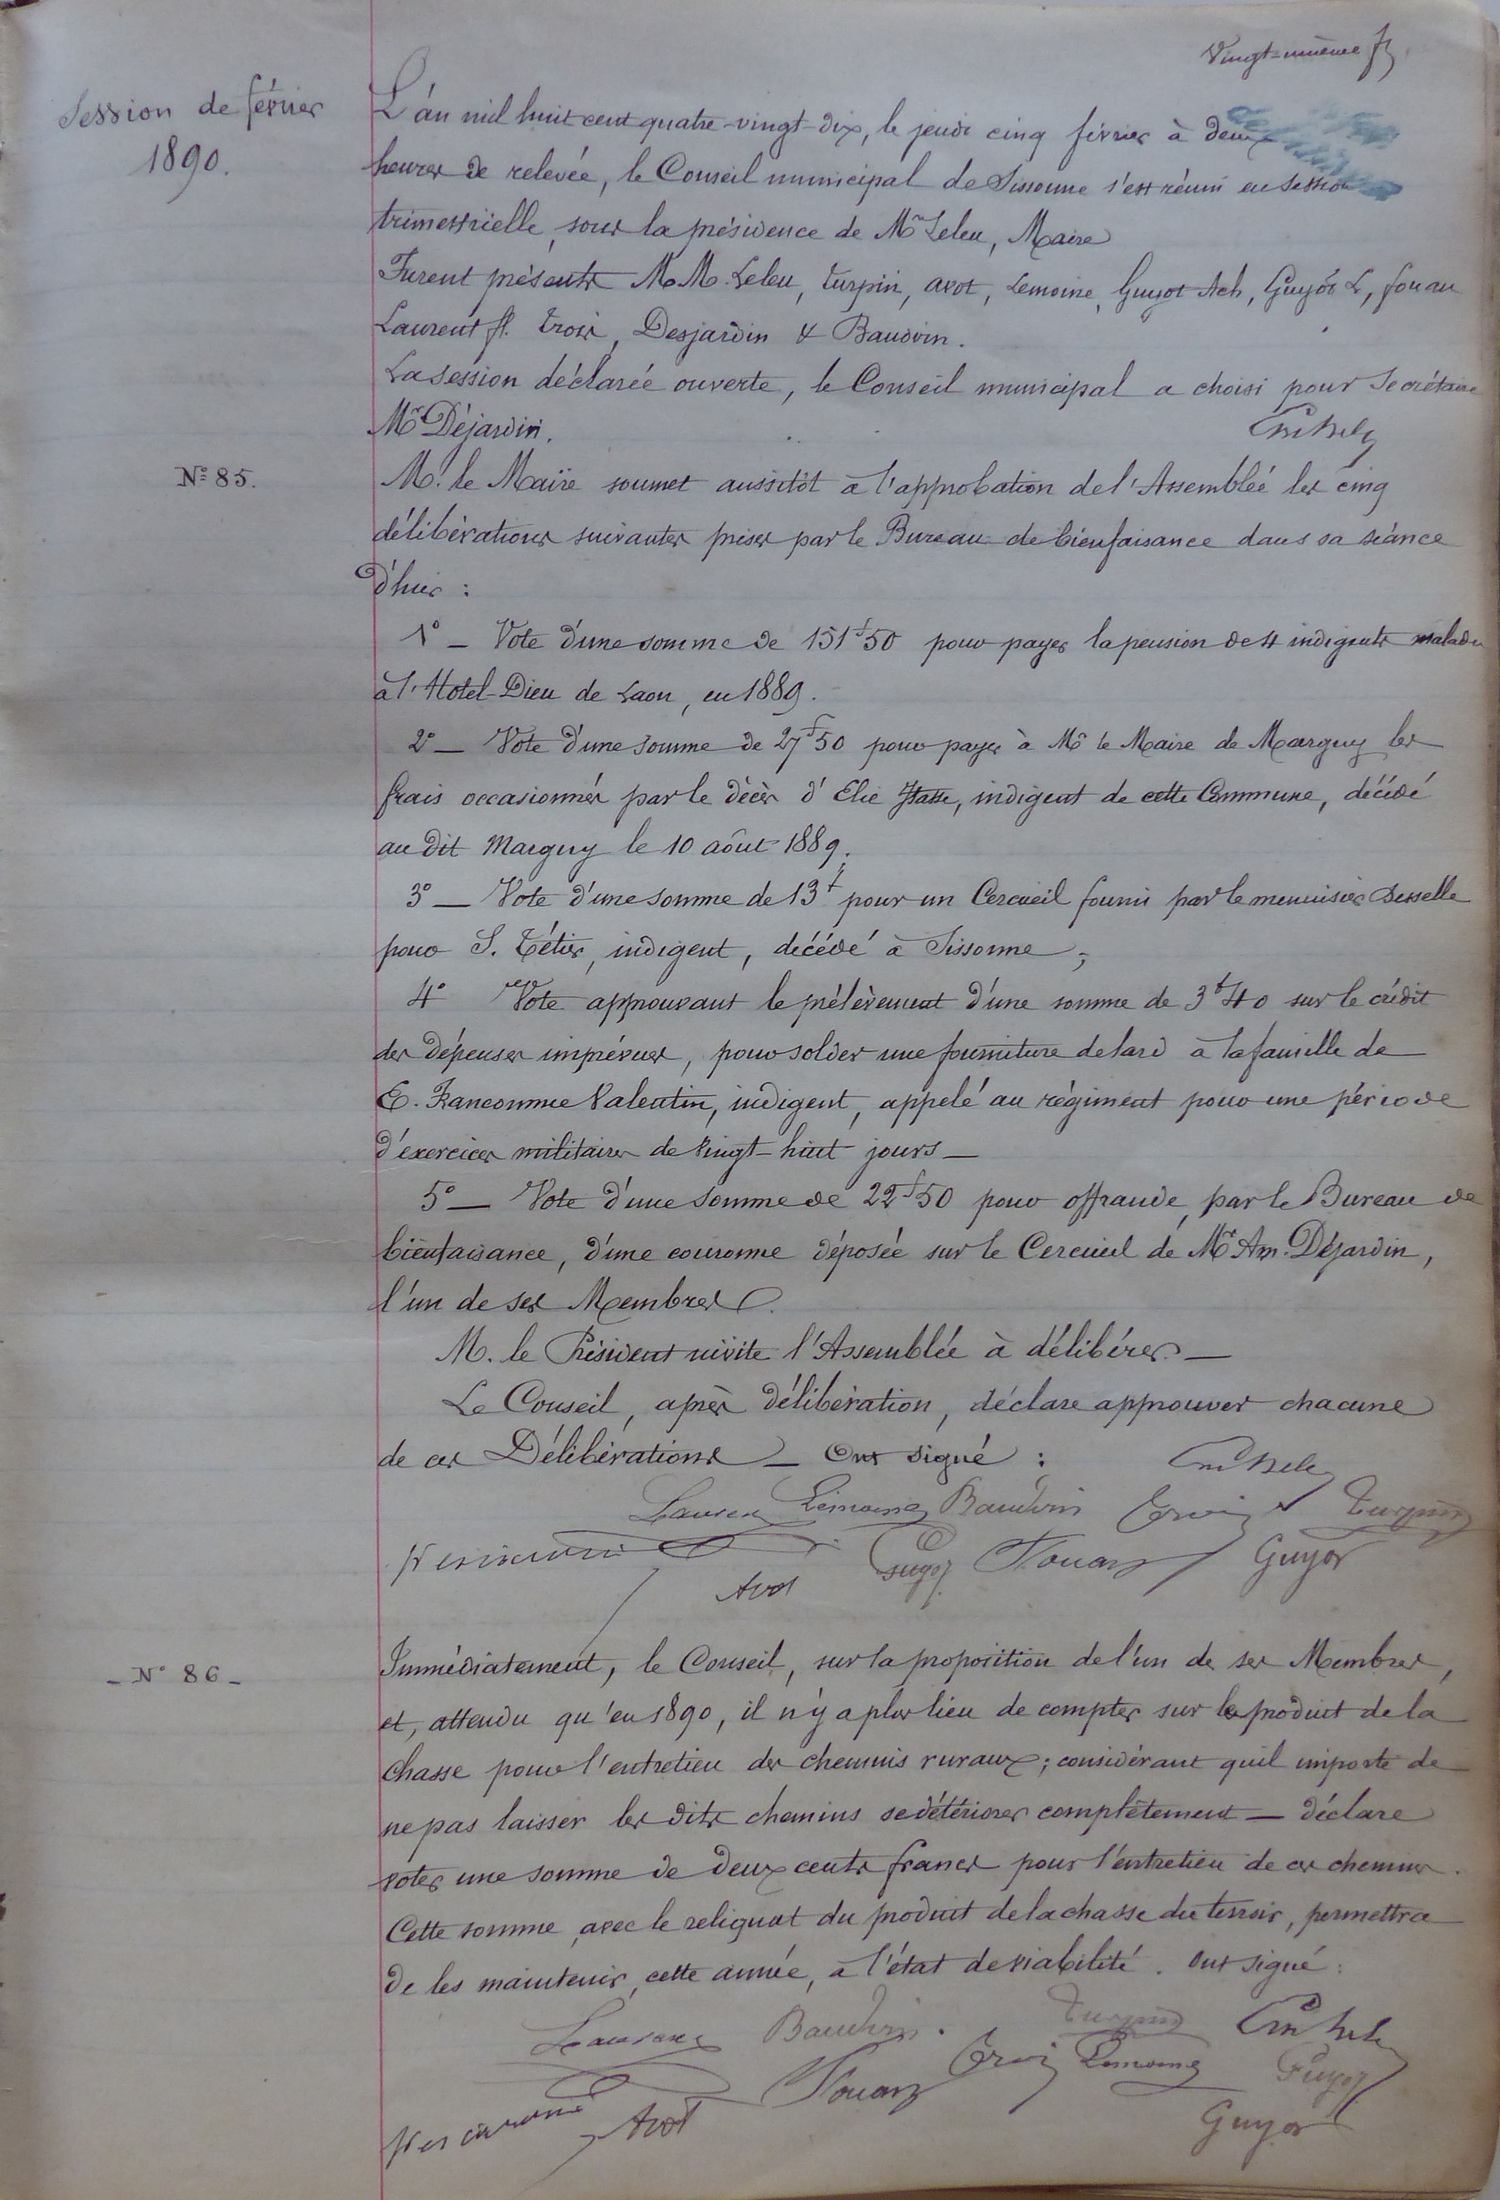 Vingt-unième
Session de février
1890.
L'an mil huit cent quatre-vingt-dix, le jeudi cinq février à deux
heures de relevée, le Conseil municipal de Sissonne s'est réuni en session
trimestrielle, sous la présidence de Mr Leleu, Maire
Furent présents M.M. Leleu, Turpin, Avot, Lemoine, Guyot Ach, Guyot L, Fouan
Laurent fl. Croix, Desjardin & Baudoin.
La session déclarée ouverte, le Conseil municipal a choisi pour Secrétaire
Mr Déjardin.
N° 85.
M. le Maire soumet aussitôt à l'approbation de l'Assemblée les cinq
délibérations suivantes prises par le Bureau de bienfaisance dans sa séance
d'hier :
1° _ Vote d'une somme de 151f50 pour payer la pension de 4 indigents malades
à l'Hotel-Dieu de Laon, en 1889.
2° _ Vote d'une somme de 27f50 pour payer à Mr le Maire de Marguy les
frais occasionnés par le décès d'Elie, indigent de cette Commune, décédé
au dit Marguy le 10 août 1889.
3° _ Vote d'une somme de 13f pour un Cercueil fourni par le menuisier Desselle
pour S. Tétier, indigent, décédé à Sissonne ;
4° Vote approuvant le prélèvement d'une somme de 3f40 sur le crédit
des dépenses imprévues, pour solder une fourniture de lard à la famille de
E. Franconme Valentin, indigent, appelé au régiment pour une période
d'exercices militaires de vingt-huit jours _
5° _ Vote d'une somme de 22f50 pour offrande, par le Bureau de
bienfaisance, d'une couronne déposée sur le Cercueil de Mr Am. Déjardin,
l'un de ses Membres.
M. le Président invite l'Assemblée à délibérer. _
Le Conseil, après délibération, déclare approuver chacune
de ces Délibérations _ Ont signé :
Laurent Lemoine Baudoin Croix Turpin
Avot Guyot Fouan Guyot
_ N° 86 _
Immédiatement, le Conseil, sur la proposition de l'un de ses Membres,
et, attendu qu'en 1890, il n'y a plus lieu de compter sur le produit de la
chasse pour l'entretien des chemins ruraux ; considérant qu'il importe de
ne pas laisser les dits chemins se détériorer complètement _ déclare
voter une somme de deux cents francs pour l'entretien de ces chemins.
Cette somme, avec le reliquat du produit de la chasse du terroir, permettra
de les maintenir, cette année, à l'état de viabilité. Ont signé :
Laurent Baudoin. Turpin
Fouan Croix Lemoine Guyot
Avot Guyot